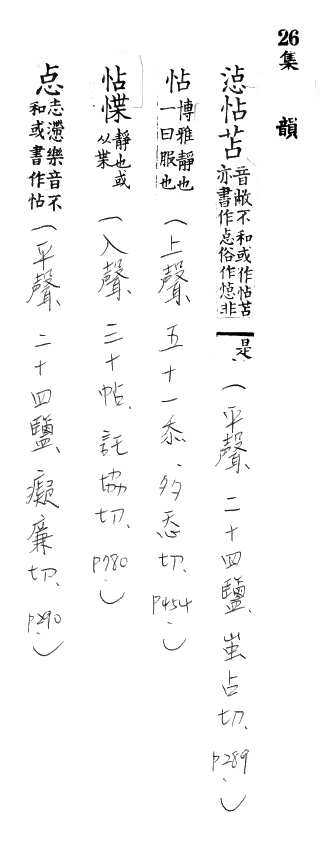 26 集　韻
惉怗苫音敝不和或作怗苫亦書作㤐俗作㥕非是、(平聲、二十四鹽、蚩占切、P289、)
怗博雅靜也一曰服也(上聲、五十一忝、多忝切、P454、)
怗㥈靜也或从枼(入聲、三十帖、託協切、P780、)
㤐志懘樂音不和或書作怗(平聲、二十四鹽、癡廉切、P290、)